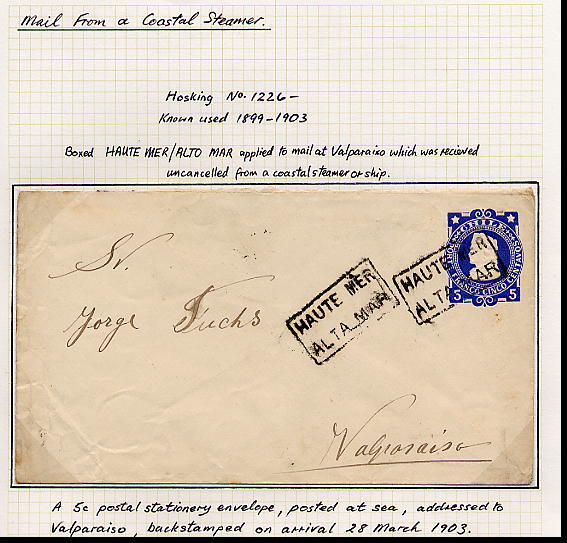 Mail From a Coastal Steamer.
Hosking No. 1226-
Known used 1899-1903
Boxed HAUTE MER/ALTO MAR applied to mail at Valparaiso which was recieved
uncancelled from a coastal steamer or ship.
CHILE
CINCO CENTAVOS
5 5
HAUTE MER
ALTA MAR
HAUTE MER
ALTA MAR
Sr.
Jorge Fuchs
Valparaiso
A 5c postal stationery envelope, posted at sea, addressed to
Valparaiso, backstamped on arrival 28 March 1903.